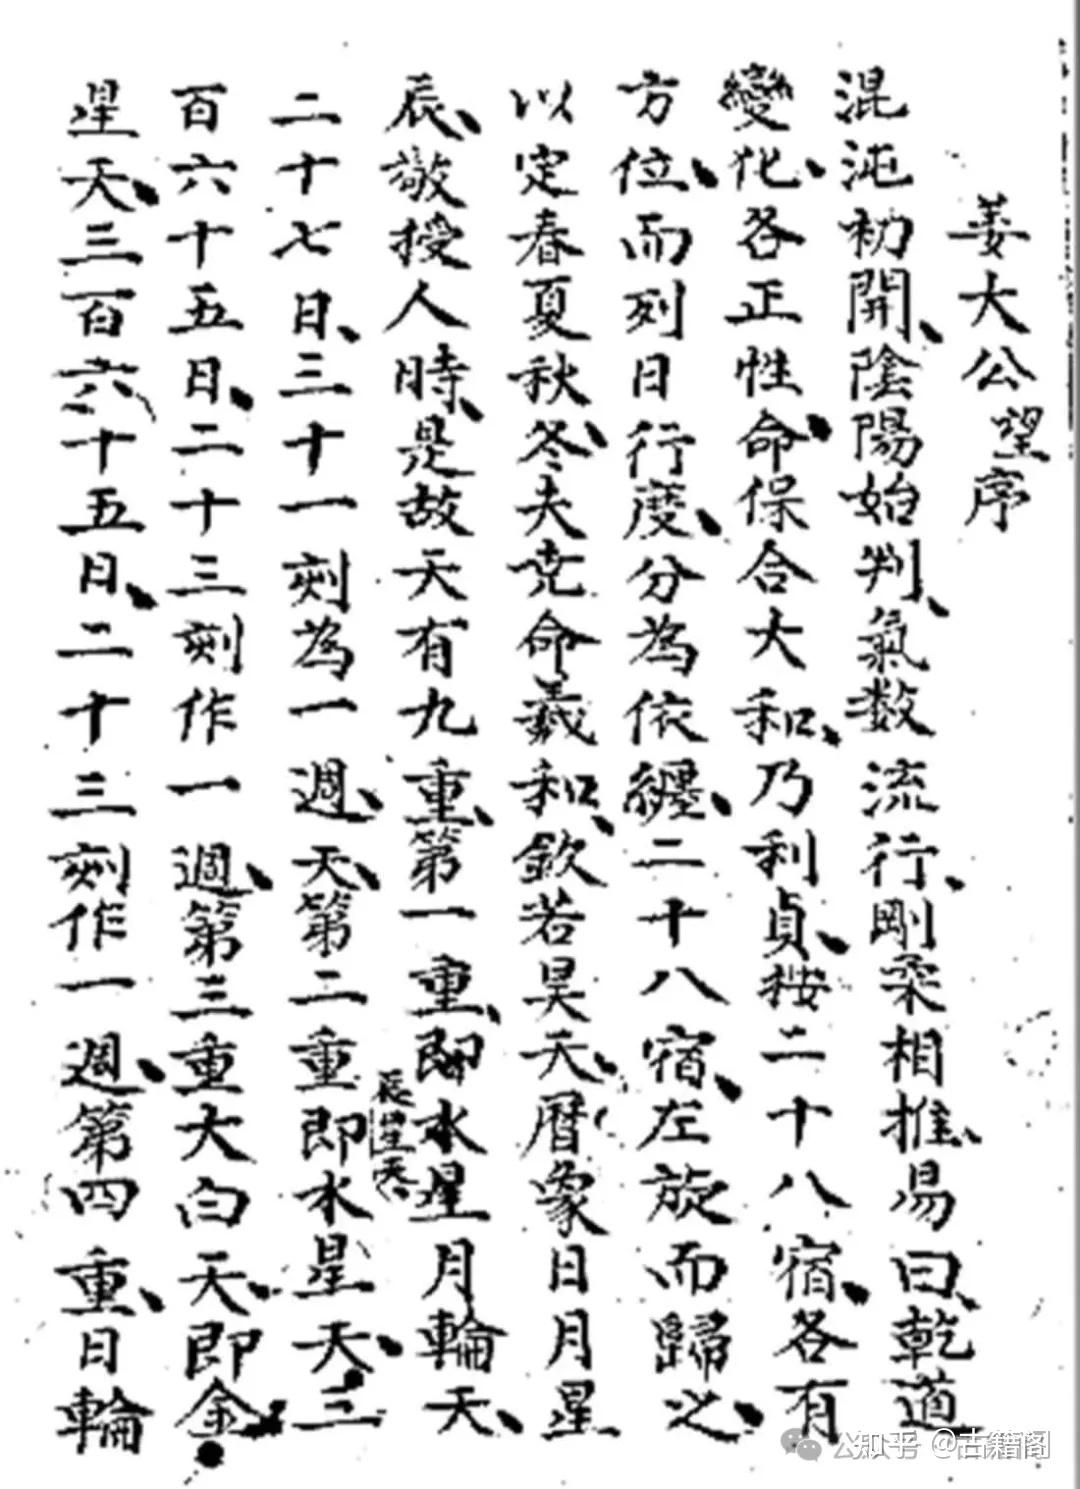 姜大公望序
混沌初開、陰陽始判、氣数流行、剛柔相推、易曰、乾道
變化、各正性命、保合大和、乃利貞、按二十八宿、各有
方位、而列日行度、分為依纏、二十八宿、左旋而歸之、
以定春夏秋冬、夫尭命羲和、欽若昊天、暦象日月星
辰、敬授人時、是故天有九重、第一重、即水星月輪天、
二十七日、三十一刻為一週天、第二重即水星天、三
辰星天、
百六十五日、二十三刻作一週、第三重大白天、即金
星天、三百六十五日、二十三刻作一週、第四重、日輪
公知乎 @古籍阁